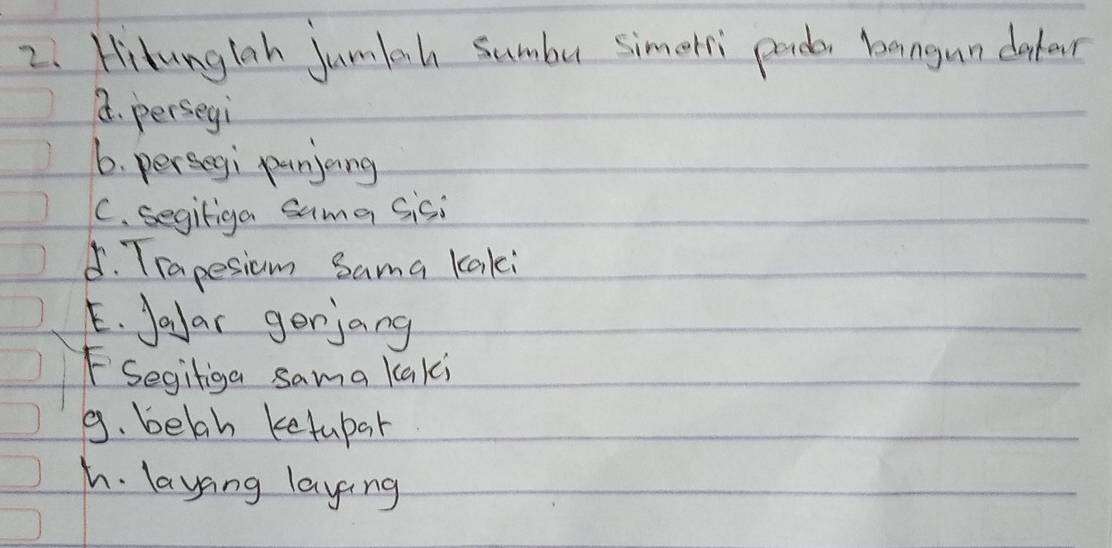 2. Hitunglah jumlah sumbu simetri pada bangun datar
a. persegi
b. persegi panjang
C. segitiga sama sisi
d. Trapesium sama kaki
E. Jajar genjang
F Segitiga sama kaki
g. belah ketupat
h. layang layang